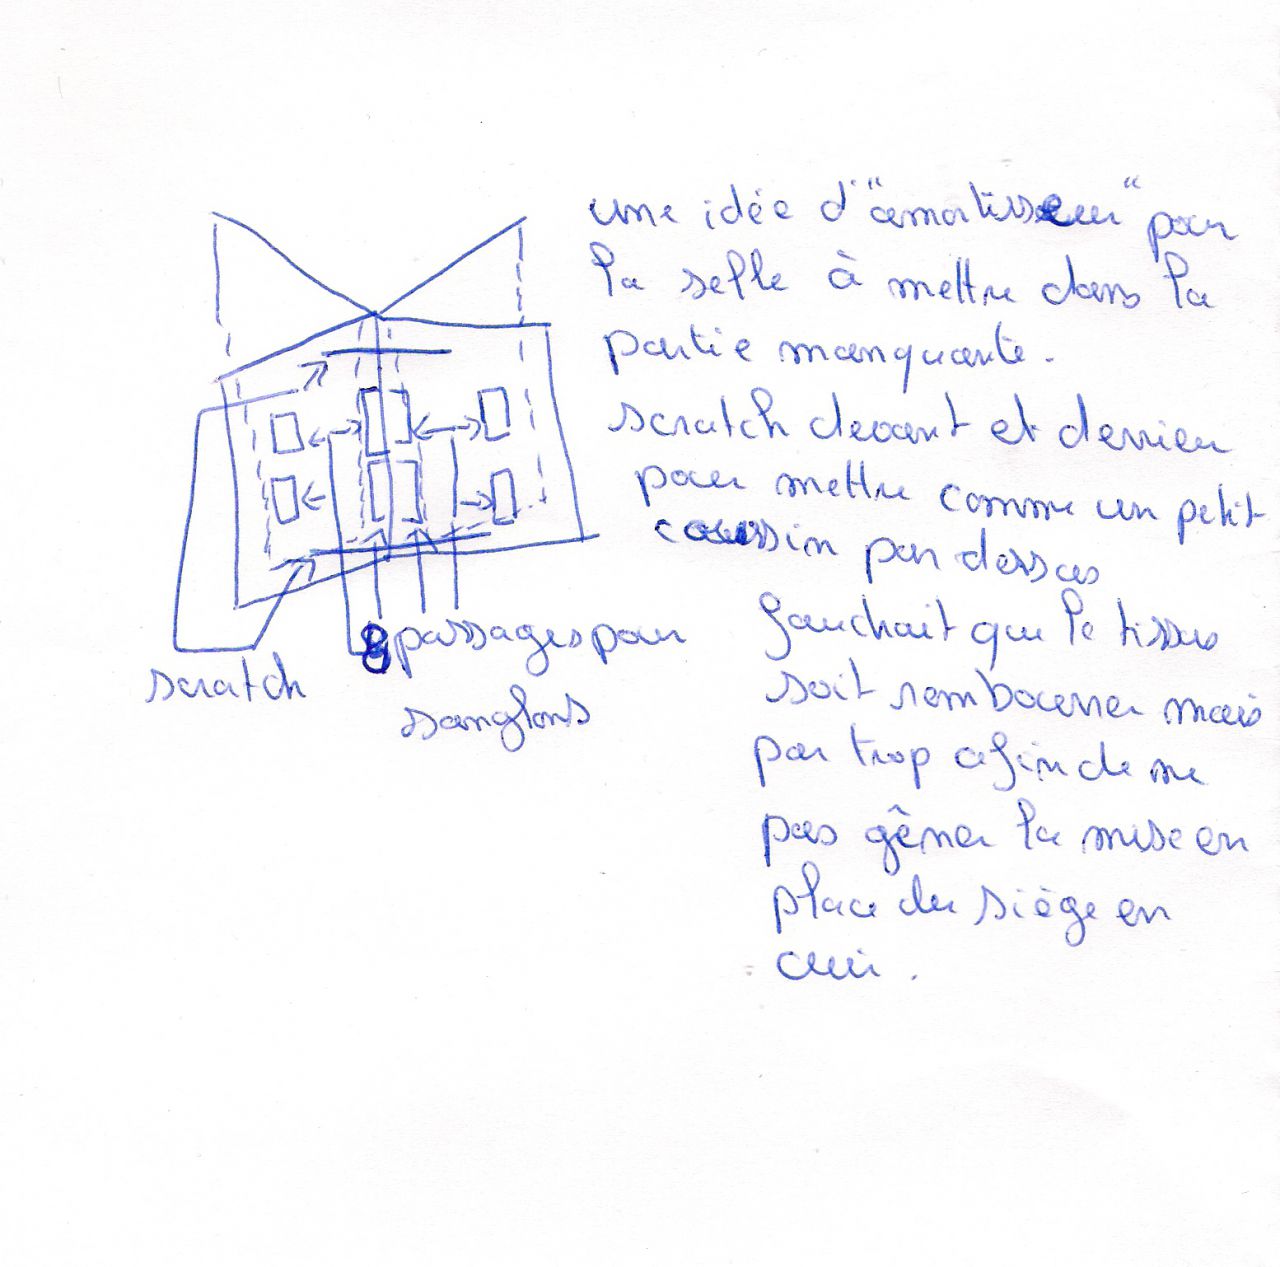 une idée d'"amortisseur" pour
la selle à mettre dans la
partie manquante.
scratch devant et derrier
pour mettre comme un petit
coussin par dessus
fauchait que le tissus
soit rembourrer mais
par trop afin de ne
pas gêner la mise en
place du siège en
cuir.
scratch
8 passages pour
sanglons